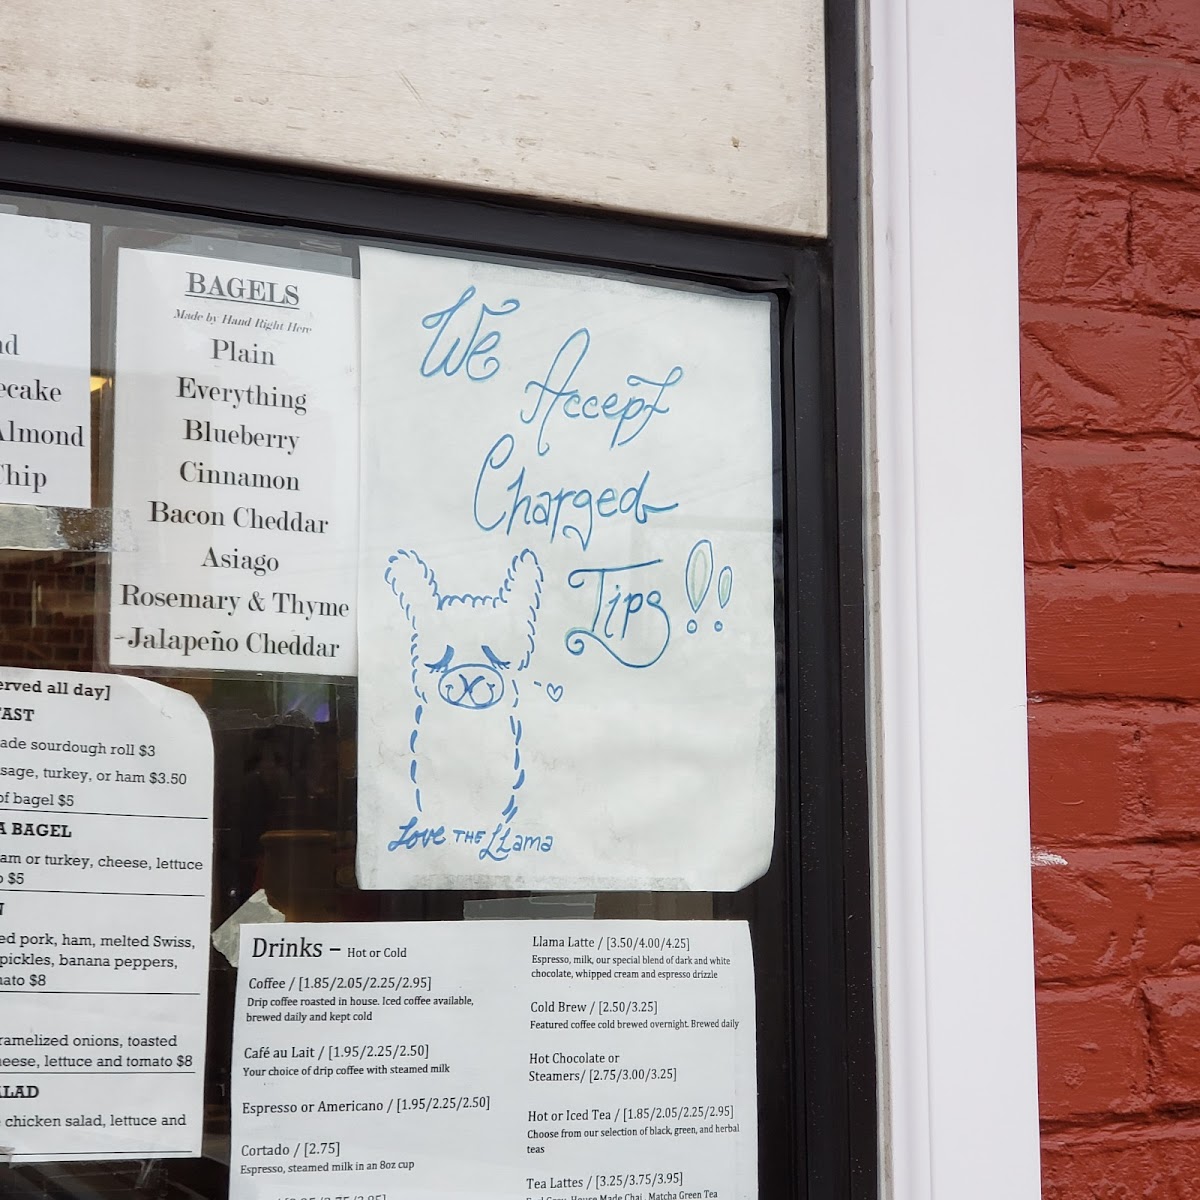 nd
ecake
Almond
Chip
BAGELS
Made by Hand Right Here
Plain
Everything
Blueberry
Cinnamon
Bacon Cheddar
Asiago
Rosemary & Thyme
Jalapeño Cheddar
We
Accept
Charged
Tips!!
Love THE LLama
erved all day]
FAST
ade sourdough roll $3
sage, turkey, or ham $3.50
of bagel $5
A BAGEL
am or turkey, cheese, lettuce
o $5
N
ed pork, ham, melted Swiss,
pickles, banana peppers,
nato $8
ramelized onions, toasted
heese, lettuce and tomato $8
ALAD
chicken salad, lettuce and
Drinks – Hot or Cold
Coffee / [1.85/2.05/2.25/2.95]
Drip coffee roasted in house. Iced coffee available,
brewed daily and kept cold
Café au Lait / [1.95/2.25/2.50]
Your choice of drip coffee with steamed milk
Espresso or Americano / [1.95/2.25/2.50]
Cortado / [2.75]
Espresso, steamed milk in an 8oz cup
Llama Latte / [3.50/4.00/4.25]
Espresso, milk, our special blend of dark and white
chocolate, whipped cream and espresso drizzle
Cold Brew / [2.50/3.25]
Featured coffee cold brewed overnight. Brewed daily
Hot Chocolate or
Steamers/ [2.75/3.00/3.25]
Hot or Iced Tea / [1.85/2.05/2.25/2.95]
Choose from our selection of black, green, and herbal
teas
Tea Lattes / [3.25/3.75/3.95]
Earl Grey, House Made Chai, Matcha Green Tea